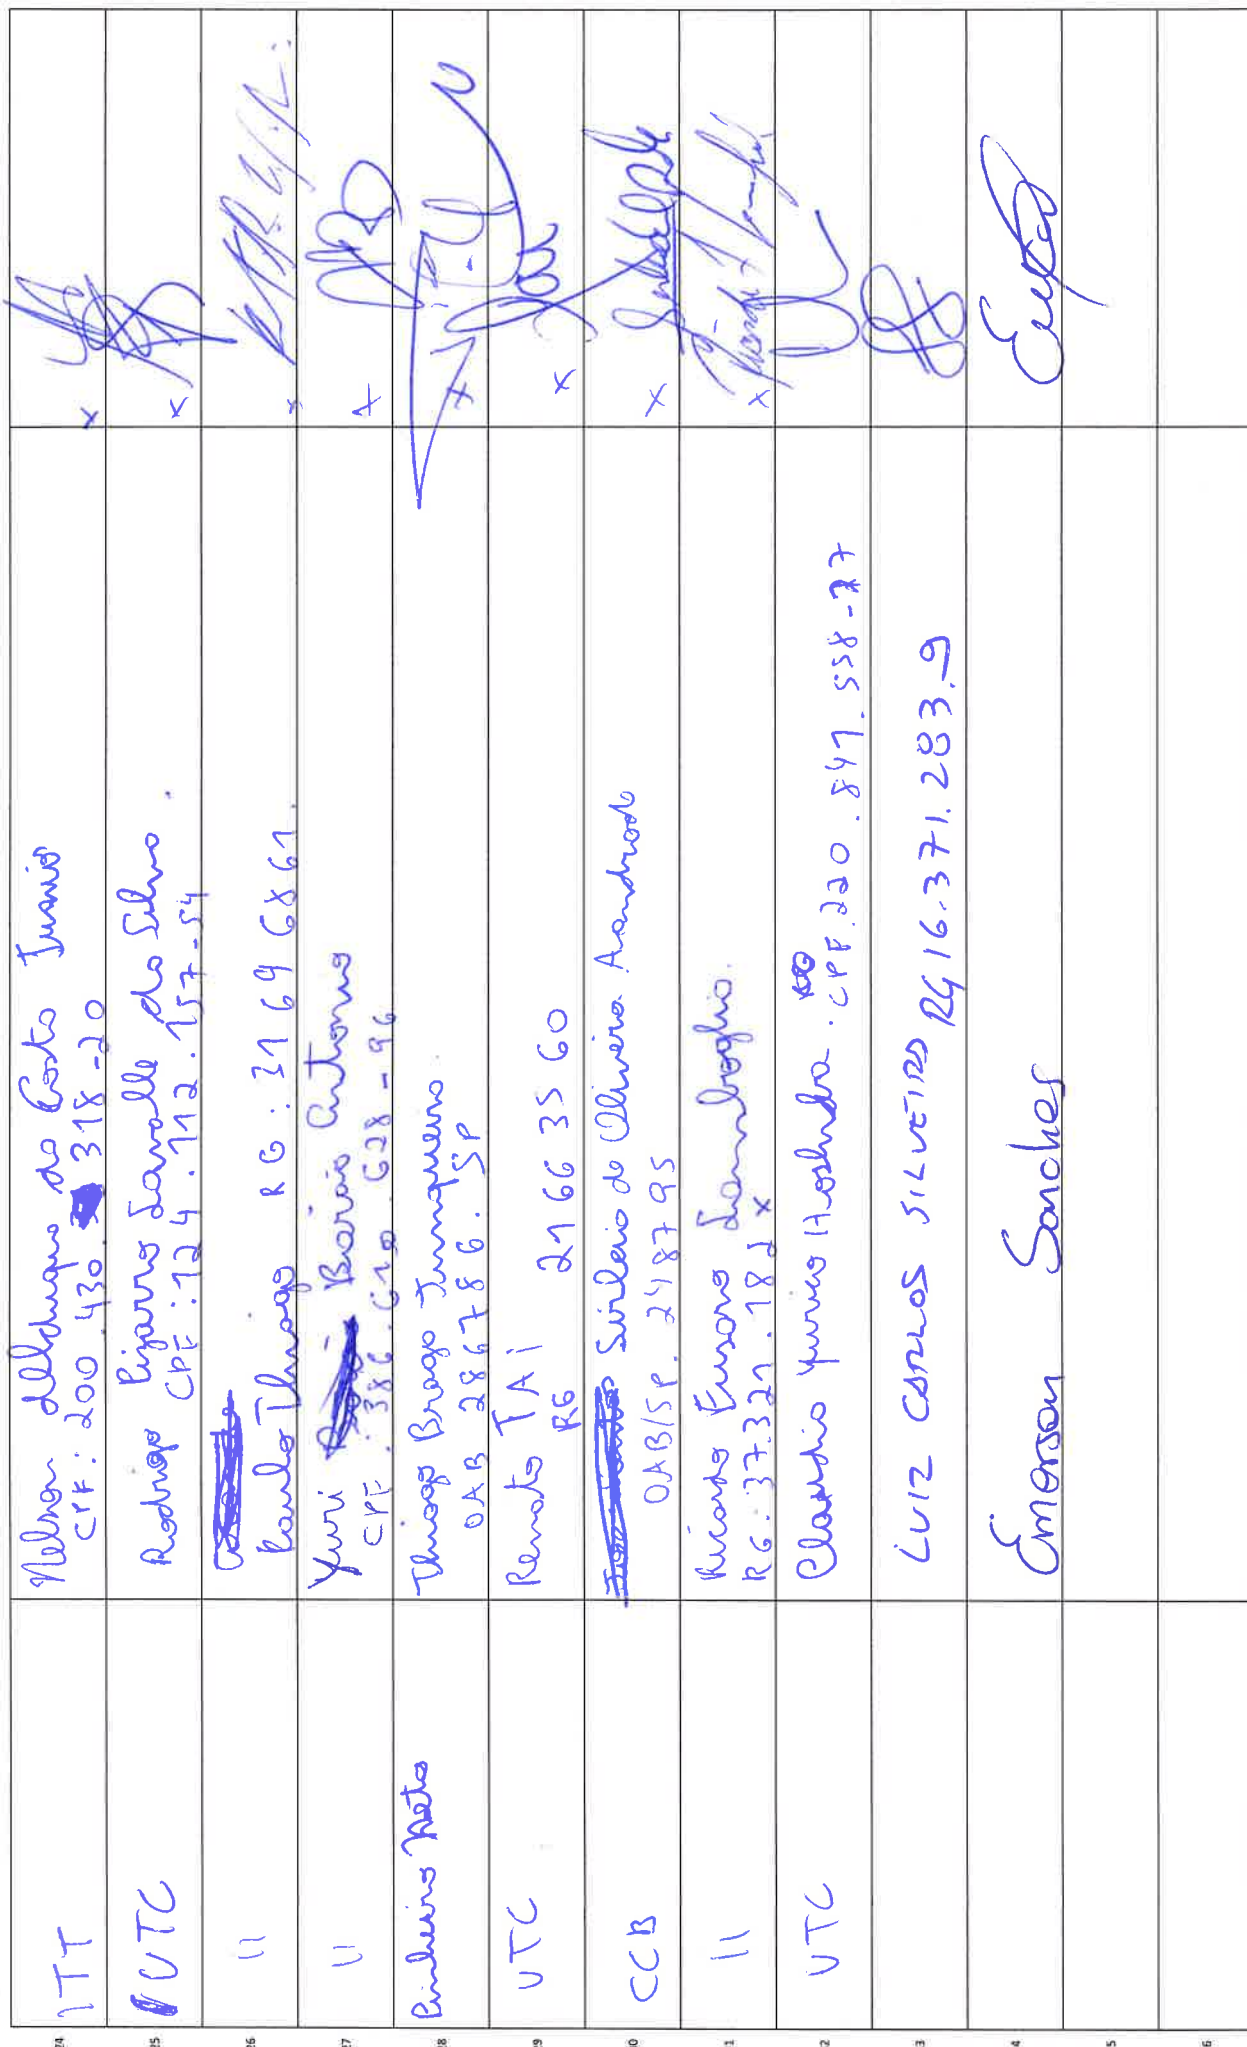 24
ITT
Nelson Albuquer da Costa Junior
CPF: 200.430.318-20
x
25
UTC
Rodrigo Pizarro Lavalle da Silva.
CPF: 124.112.157-54
x
26
11
Paulo Thiago RG: 3169 6861.
x
27
11
Yuri Barião Antonio
CPF: 386.610.628-96
x
28
Pinheiro Neto
Thiago Braga Junqueira
OAB 286786. SP
x
29
UTC
Renato TAi
RG 2166 35 60
x
30
CCB
Sirleio de Oliveira Aandrade
OAB/SP. 248795
x
1
11
Ricardo
RG: 37.321.182 x
x
2
UTC
Claudio CPF.220.847.558-77
3
LUIZ CARLOS SILVEIRO RG 16.371.283.9
4
Emerson Sanches
5
6